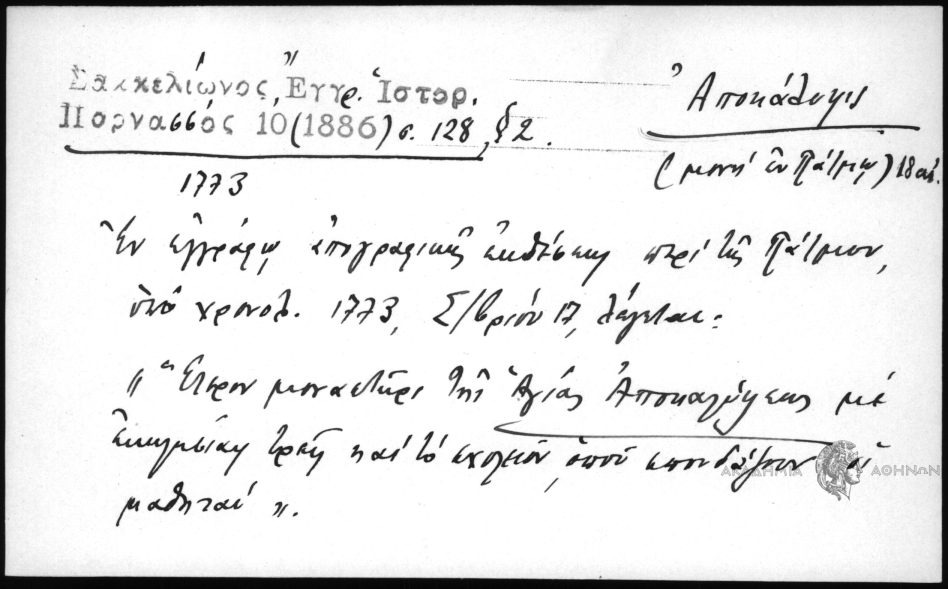 Σακκελίωνος, Ἔγγρ. Ἱστορ.
Παρνασσός 10 (1886) σ. 128, § 2.
Ἀποκάλυψις
(μονή ἐν Πάτμῳ) 18 αἰ.
1773
Ἐν ἐγγράφῳ ἀπογραφικῆς ἐκθέσεως περί τῆς Πάτμου,
ὑπό χρονολ. 1773, Σ/βρίου 17, λέγεται:
„ Ἕτερον μοναστήρι τῆς Ἁγίας Ἀποκαλύψεως μέ
ἐκκλησίας τρεῖς καί τό σχολεῖον, ὁπού σπουδάζουν οἱ
μαθηταί „.
ΑΚΑΔΗΜΙΑ ΑΘΗΝΩΝ